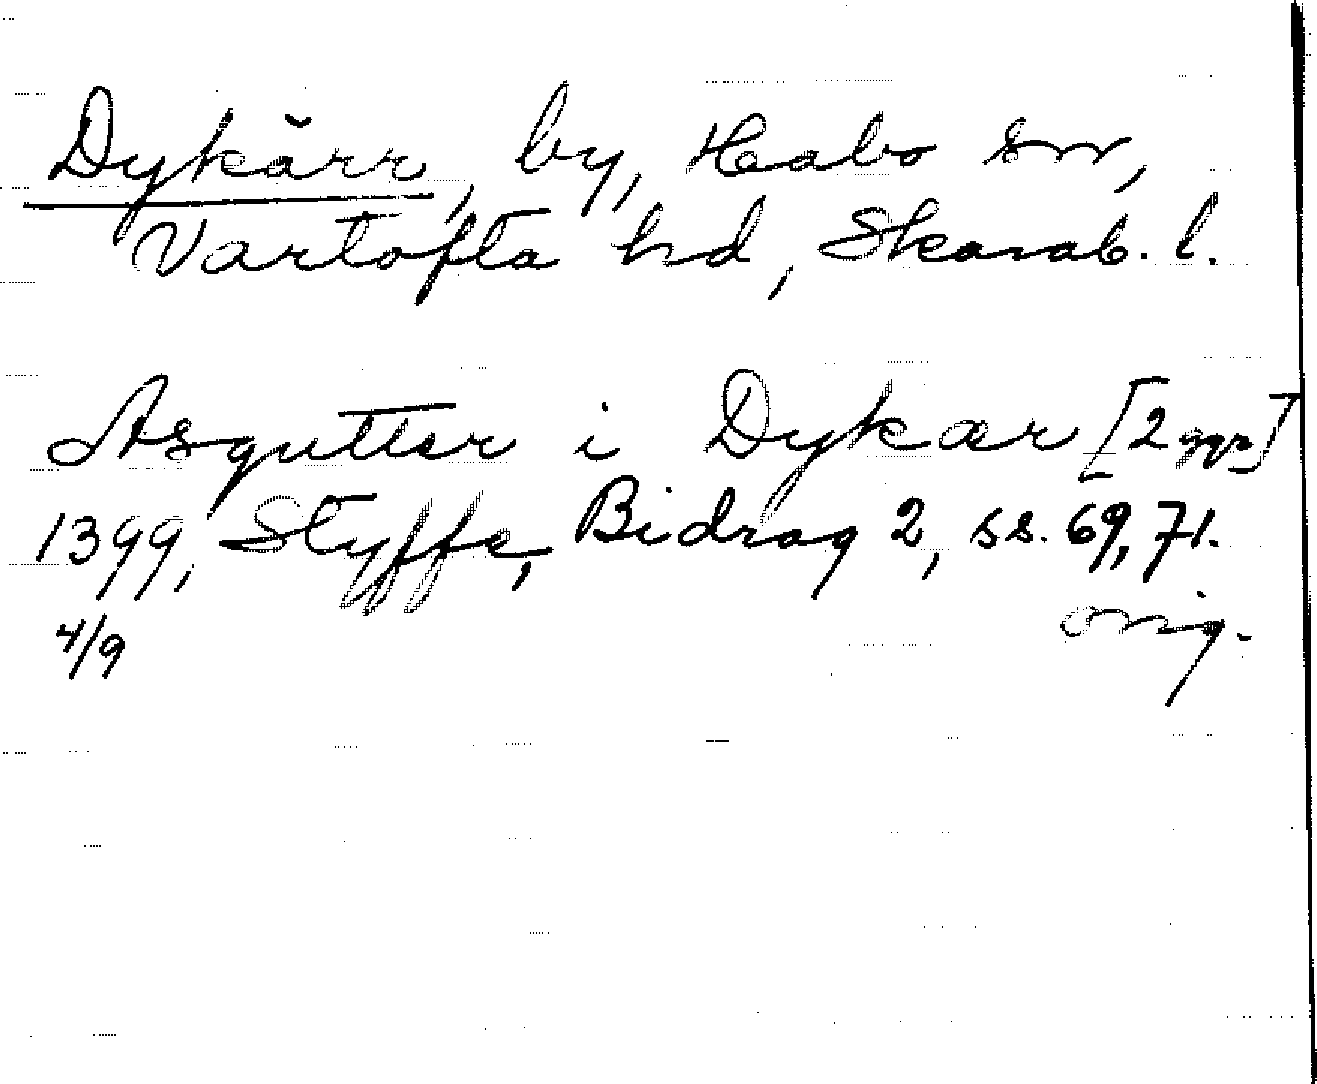 Dykärr, by, Habo sn,
Vartofta hd, Skarab. l.
Asgutter i Dykær [2 ggr]
1399, Styffe, Bidrag 2, ss. 69, 71.
orig.
4/9